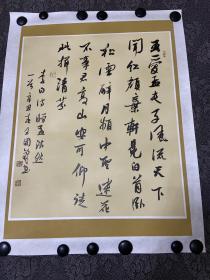 吾爱孟夫子风流天下
闻红颜弃轩冕白首卧
松云醉月频中圣迷花
不事君高山安可仰徒
此揖清芬
李白诗赠孟浩然